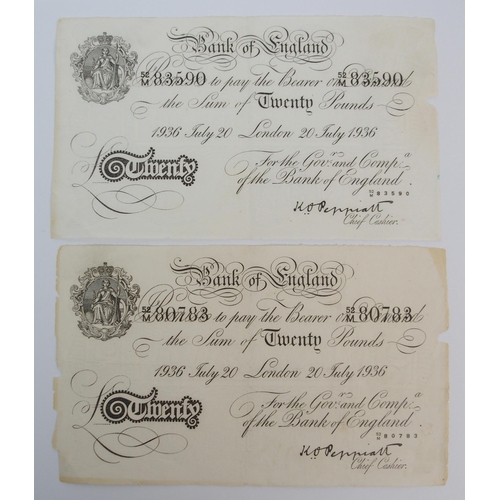 Bank of England
52/M 83590 to pay the Bearer on Demand 52/M 83590
the Sum of Twenty Pounds
1936 July 20 London 20 July 1936
For the Govr. and Compa.
£Twenty of the Bank of England
52/M 83590
K O Peppiatt
Chief Cashier.
Bank of England
52/M 80783 to pay the Bearer on Demand 52/M 80783
the Sum of Twenty Pounds
1936 July 20 London 20 July 1936
For the Govr. and Compa.
£Twenty of the Bank of England
52/M 80783
K O Peppiatt
Chief Cashier.